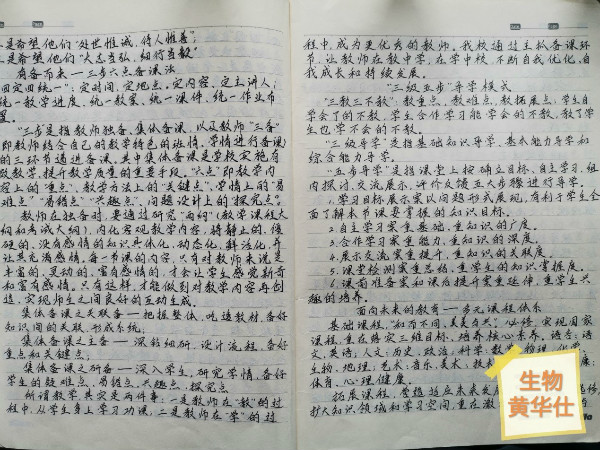 是希望他们"处世惟诚,待人惟善";
是希望他们"大志当弘,细行当敦"
有备而来——三步六点备课法
四定四统一":定时间,定地点,定内容,定主讲人;
统一教学进度,统一教案,统一课件,统一作业布
置。
"三步是指教师独备,集体备课,以及教师"三备"
即教师结合自己的教学特色的班情、学情进行备课)
的三环节递进备课,其中集体备课是学校实施有
效教学,提升教学质量的重要手段。"六点"即教学内
容上的"重点"、教学方法上的"关键点"、学情上的"易
难点""易错点""兴趣点"、问题设计上的"探究点"。
教师在独备时,要通过研究"两纲"(教学课程大
纲和考试大纲),内化宏观教学内容,将静止的、僵
硬的、没有感情的知识具体化、动态化、鲜活化,并
让其充满感情,每一节课的内容,只有对教师来说是
丰富的、灵动的、富有感情的,才会让学生感觉新奇
和富有感情。只有这样,才能做到对教学内容再创
造,实现师生之间良好的互动生成。
集体备课之关联备——把握整体,吃透教材,备好
知识间的关联,形成系统;
集体备课之主备——深钻细研,设计流程,备好
重点和关键点;
集体备课之研备——深入学生,研究学情,备好
学生的疑难点、易错点、兴趣点、探究点
所谓教学其实是两件事:一是教师在"教"的过
程中,从学生身上学习功课,二是教师在"学"的过
程中,成为更优秀的教师。我校通过主抓备课环
节,让教师在教中学,在学中校,不断自我优化,自
我成长和持续发展。
"三级五步"导学模式
"三教三不教":教重点、教难点、教拓展点;学生自
学会了的不教,学生合作学习能学会的不教,教了学
生也学不会的不教。
"三级导学"是指基础知识导学、基本能力导学和
综合能力导学。
"五步导学"是指课堂上按确立目标、自主学习、组
内探讨、交流展示、评价反馈五大步骤进行导学。
1.学习目标展示案以问题形式展现,有利于学生全
面了解本节课要掌握的知识目标。
2.自主学习案重基础,重知识的广度。
3.合作学习案重能力,重知识的深度。
4.展示交流案重提升,重知识的关联度
5.课堂检测案重总结,重学生的知识掌握度。
6.课前准备案和课后提升案重延伸,重学生兴
趣的培养。
面向未来的教育——多元课程体系
基础课程,"和而不同,美美与共"。必修,实现国家
课程,重在落实三维目标,培养核心素养。语言:语
文、英语;人文:历史、政治;科学:数学、物理、化学、
生物、地理;艺术:音乐、美术、技
体育、心理、健康。
拓展课程,尊
扩大知识领域和学习空间,重在激
生物
黄华仕